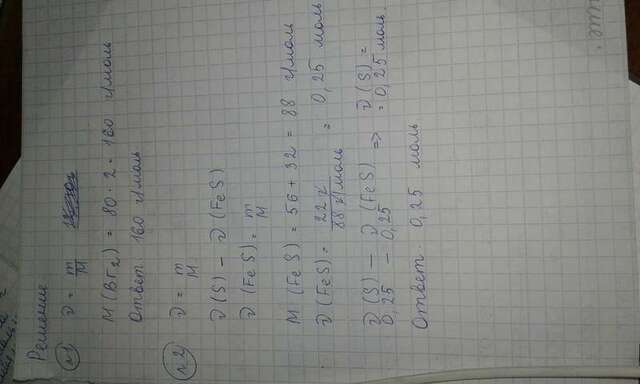 Решение
№1 ν = m/M
M(Br2) = 80 · 2 = 160 г/моль
Ответ: 160 г/моль
№2 ν = m/M
ν(S) – ν(FeS)
ν(FeS) = m/M
M(FeS) = 56 + 32 = 88 г/моль
ν(FeS) = 22 г/88 г/моль = 0,25 моль
ν(S) – ν(FeS) => ν(S) =
0,25 – 0,25 = 0,25 моль.
Ответ: 0,25 моль